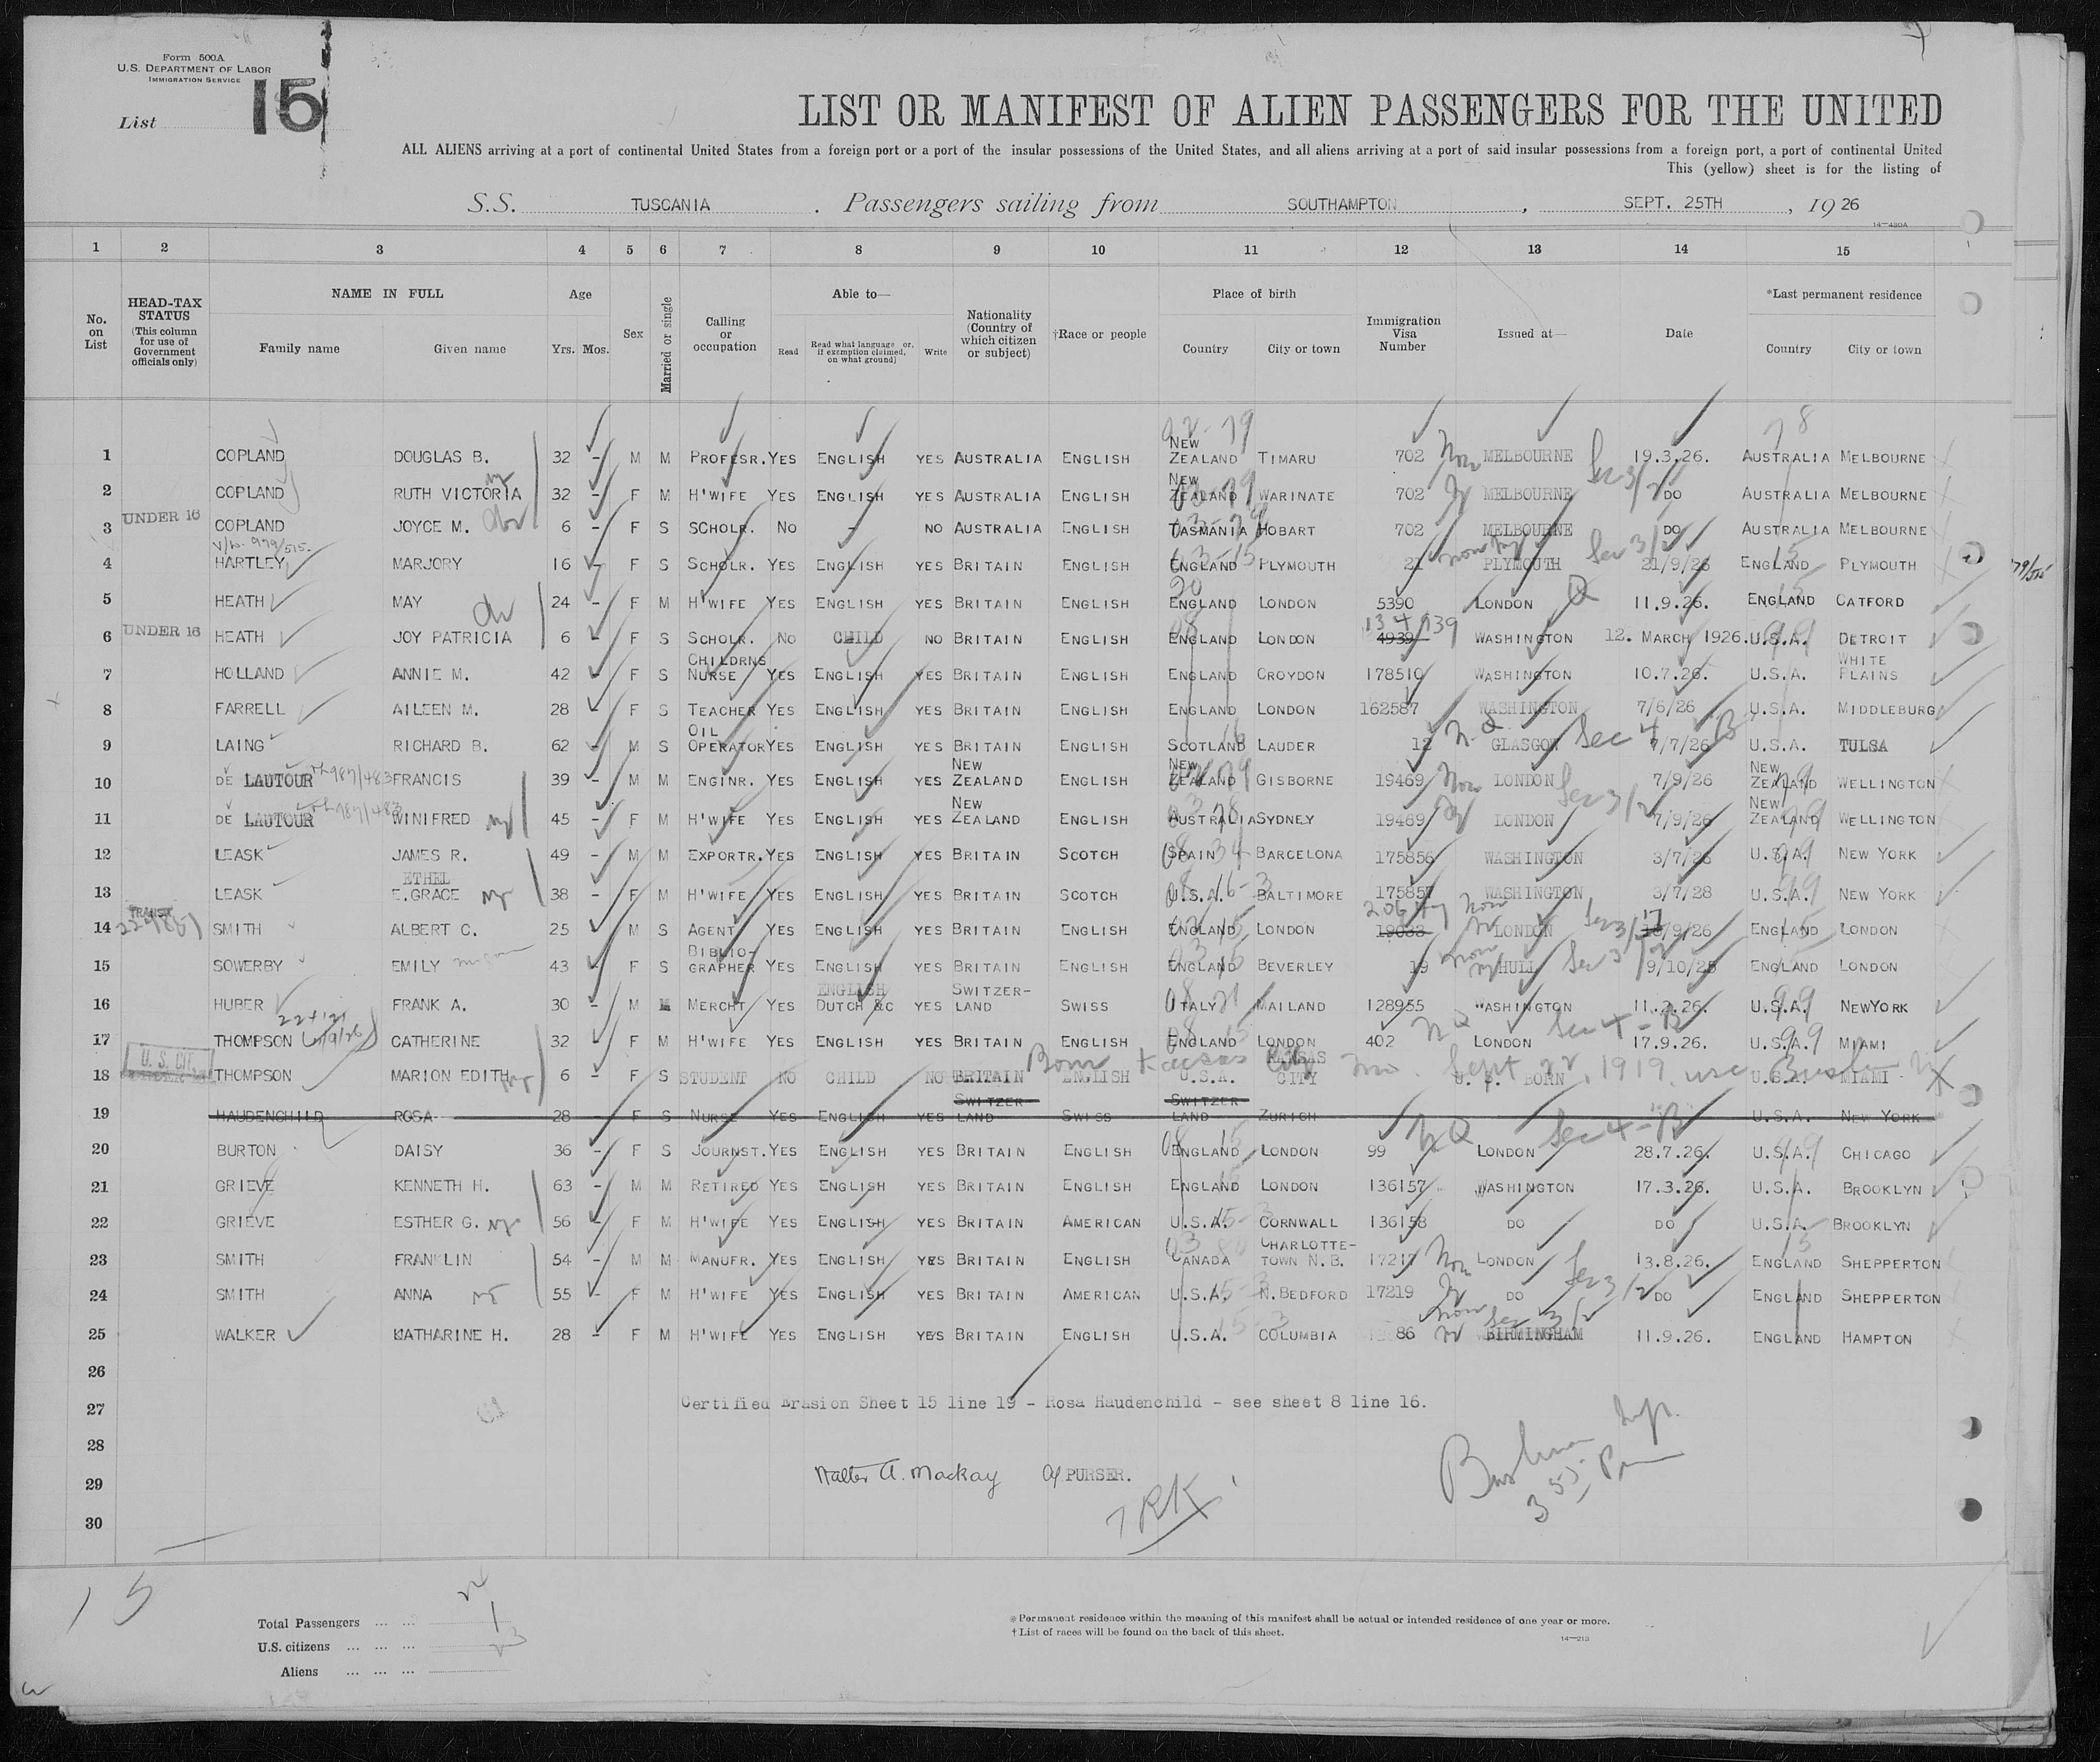 Form 500A
U.S. DEPARTMENT OF LABOR
IMMIGRATION SERVICE
List 15
LIST OR MANIFEST OF ALIEN PASSENGERS FOR THE UNITED
ALL ALIENS arriving at a port of continental United States from a foreign port or a port of the insular possessions of the United States, and all aliens arriving at a port of said insular possessions from a foreign port, a port of continental United
This (yellow) sheet is for the listing of
S.S. TUSCANIA. Passengers sailing from SOUTHAMPTON, SEPT. 25TH, 19 26
14—480A
1 2 3 4 5 6 7 8 9 10 11 12 13 14 15
No. on List
HEAD-TAX STATUS (This column for use of Government officials only)
NAME IN FULL
Family name Given name
Age
Yrs. Mos.
Sex
Married or single
Calling or occupation
Able to—
Read Read what language or, if exemption claimed, on what ground] Write
Nationality (Country of which citizen or subject)
†Race or people
Place of birth
Country City or town
Immigration Visa Number
Issued at—
Date
*Last permanent residence
Country City or town
1 COPLAND DOUGLAS B. 32 - M M PROFESR. YES ENGLISH YES AUSTRALIA ENGLISH NEW ZEALAND TIMARU 702 MELBOURNE 19.3.26. AUSTRALIA MELBOURNE
2 COPLAND RUTH VICTORIA 32 - F M H'WIFE YES ENGLISH YES AUSTRALIA ENGLISH NEW ZEALAND WARINATE 702 MELBOURNE DO AUSTRALIA MELBOURNE
3 UNDER 16 COPLAND JOYCE M. 6 - F S SCHOLR. NO - NO AUSTRALIA ENGLISH TASMANIA HOBART 702 MELBOURNE DO AUSTRALIA MELBOURNE
4 HARTLEY MARJORY 16 - F S SCHOLR. YES ENGLISH YES BRITAIN ENGLISH ENGLAND PLYMOUTH 21 PLYMOUTH 21/9/26 ENGLAND PLYMOUTH
5 HEATH MAY 24 - F M H'WIFE YES ENGLISH YES BRITAIN ENGLISH ENGLAND LONDON 5390 LONDON 11.9.26. ENGLAND CATFORD
6 UNDER 16 HEATH JOY PATRICIA 6 - F S SCHOLR. NO CHILD NO BRITAIN ENGLISH ENGLAND LONDON 4939 134939 WASHINGTON 12. MARCH 1926. U.S.A. DETROIT
7 HOLLAND ANNIE M. 42 - F S CHILDRNS NURSE YES ENGLISH YES BRITAIN ENGLISH ENGLAND CROYDON 178510 WASHINGTON 10.7.26. U.S.A. WHITE PLAINS
8 FARRELL AILEEN M. 28 - F S TEACHER YES ENGLISH YES BRITAIN ENGLISH ENGLAND LONDON 162587 WASHINGTON 7/6/26 U.S.A. MIDDLEBURG
9 LAING RICHARD B. 62 - M S OIL OPERATOR YES ENGLISH YES BRITAIN ENGLISH SCOTLAND LAUDER 12 GLASGOW 7/7/26 U.S.A. TULSA
10 DE LAUTOUR FRANCIS 39 - M M ENGINR. YES ENGLISH YES NEW ZEALAND ENGLISH NEW ZEALAND GISBORNE 19469 LONDON 7/9/26 NEW ZEALAND WELLINGTON
11 DE LAUTOUR WINIFRED 45 - F M H'WIFE YES ENGLISH YES NEW ZEALAND ENGLISH AUSTRALIA SYDNEY 19469 LONDON 7/9/26 NEW ZEALAND WELLINGTON
12 LEASK JAMES R. 49 - M M EXPORTR. YES ENGLISH YES BRITAIN SCOTCH SPAIN BARCELONA 175856 WASHINGTON 3/7/26 U.S.A. NEW YORK
13 LEASK ETHEL E. GRACE 38 - F M H'WIFE YES ENGLISH YES BRITAIN SCOTCH U.S.A. BALTIMORE 175857 WASHINGTON 3/7/28 U.S.A. NEW YORK
14 TRANSIT SMITH ALBERT C. 25 - M S AGENT YES ENGLISH YES BRITAIN ENGLISH ENGLAND LONDON LONDON 17/9/26 ENGLAND LONDON
15 SOWERBY EMILY 43 - F S BIBLIO-GRAPHER YES ENGLISH YES BRITAIN ENGLISH ENGLAND BEVERLEY 19 HULL 9/10/25 ENGLAND LONDON
16 HUBER FRANK A. 30 - M M MERCHT YES ENGLISH DUTCH &C YES SWITZER-LAND SWISS ITALY MAILAND 128955 WASHINGTON 11.2.26. U.S.A. NEWYORK
17 THOMPSON CATHERINE 32 - F M H'WIFE YES ENGLISH YES BRITAIN ENGLISH ENGLAND LONDON 402 LONDON 17.9.26. U.S.A. MIAMI
18 U.S. CIT. THOMPSON MARION EDITH 6 - F S STUDENT NO CHILD NO BRITAIN ENGLISH U.S.A. KANSAS CITY U.S. BORN U.S.A. MIAMI
Born Kansas City Mo. Sept 22, 1919
19 HAUDENCHILD ROSA 28 - F S NURSE YES ENGLISH YES SWITZER LAND SWISS SWITZER LAND ZURICH U.S.A. NEW YORK
20 BURTON DAISY 36 - F S JOURNST. YES ENGLISH YES BRITAIN ENGLISH ENGLAND LONDON 99 LONDON 28.7.26. U.S.A. CHICAGO
21 GRIEVE KENNETH H. 63 - M M RETIRED YES ENGLISH YES BRITAIN ENGLISH ENGLAND LONDON 136157 WASHINGTON 17.3.26. U.S.A. BROOKLYN
22 GRIEVE ESTHER G. 56 - F M H'WIFE YES ENGLISH YES BRITAIN AMERICAN U.S.A. CORNWALL 136158 DO DO U.S.A. BROOKLYN
23 SMITH FRANKLIN 54 - M M MANUFR. YES ENGLISH YES BRITAIN ENGLISH CANADA CHARLOTTE-TOWN N.B. 17217 LONDON 13.8.26. ENGLAND SHEPPERTON
24 SMITH ANNA 55 - F M H'WIFE YES ENGLISH YES BRITAIN AMERICAN U.S.A. N.BEDFORD 17219 DO DO ENGLAND SHEPPERTON
25 WALKER KATHARINE H. 28 - F M H'WIFE YES ENGLISH YES BRITAIN ENGLISH U.S.A. COLUMBIA 86 BIRMINGHAM 11.9.26. ENGLAND HAMPTON
26
27 Certified Erasion Sheet 15 line 19 - Rosa Haudenchild - see sheet 8 line 16.
28
29 Walter A. Mackay PURSER.
30
15
Total Passengers ... ...
U.S. citizens ... ... ... 1
Aliens ... ... ... 23
*Permanent residence within the meaning of this manifest shall be actual or intended residence of one year or more.
†List of races will be found on the back of this sheet.
14—213